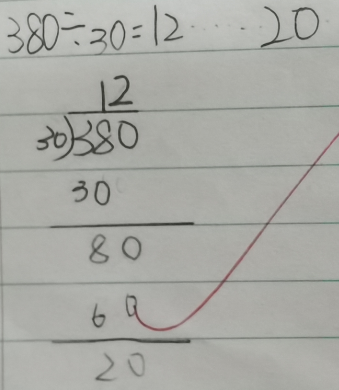 380÷30=12……20
12
30)380
30
80
60
20